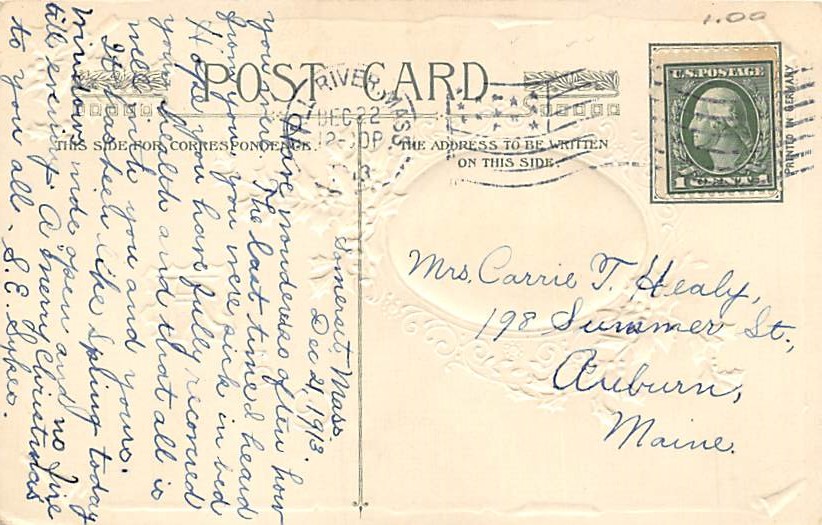 1.00
POST CARD
THIS SIDE FOR CORRESPONDENCE.
THE ADDRESS TO BE WRITTEN
ON THIS SIDE
RIVER, MASS.
DEC 22
U.S. POSTAGE
1 CENT 1
PRINTED IN GERMANY
Mrs. Carrie T. Healy,
198 Summer St.,
Auburn,
Maine.
Somerset, Mass.
Dec 21, 1913.
Have wondered so often how
you were. The last time I heard
from you, you were sick in bed
Hope you have fully recovered
your health and that all is
well with you and yours.
It has been like Spring today
Windows wide open and no fire
till evening. A Merry Christmas
to you all. S. E. Sykes.